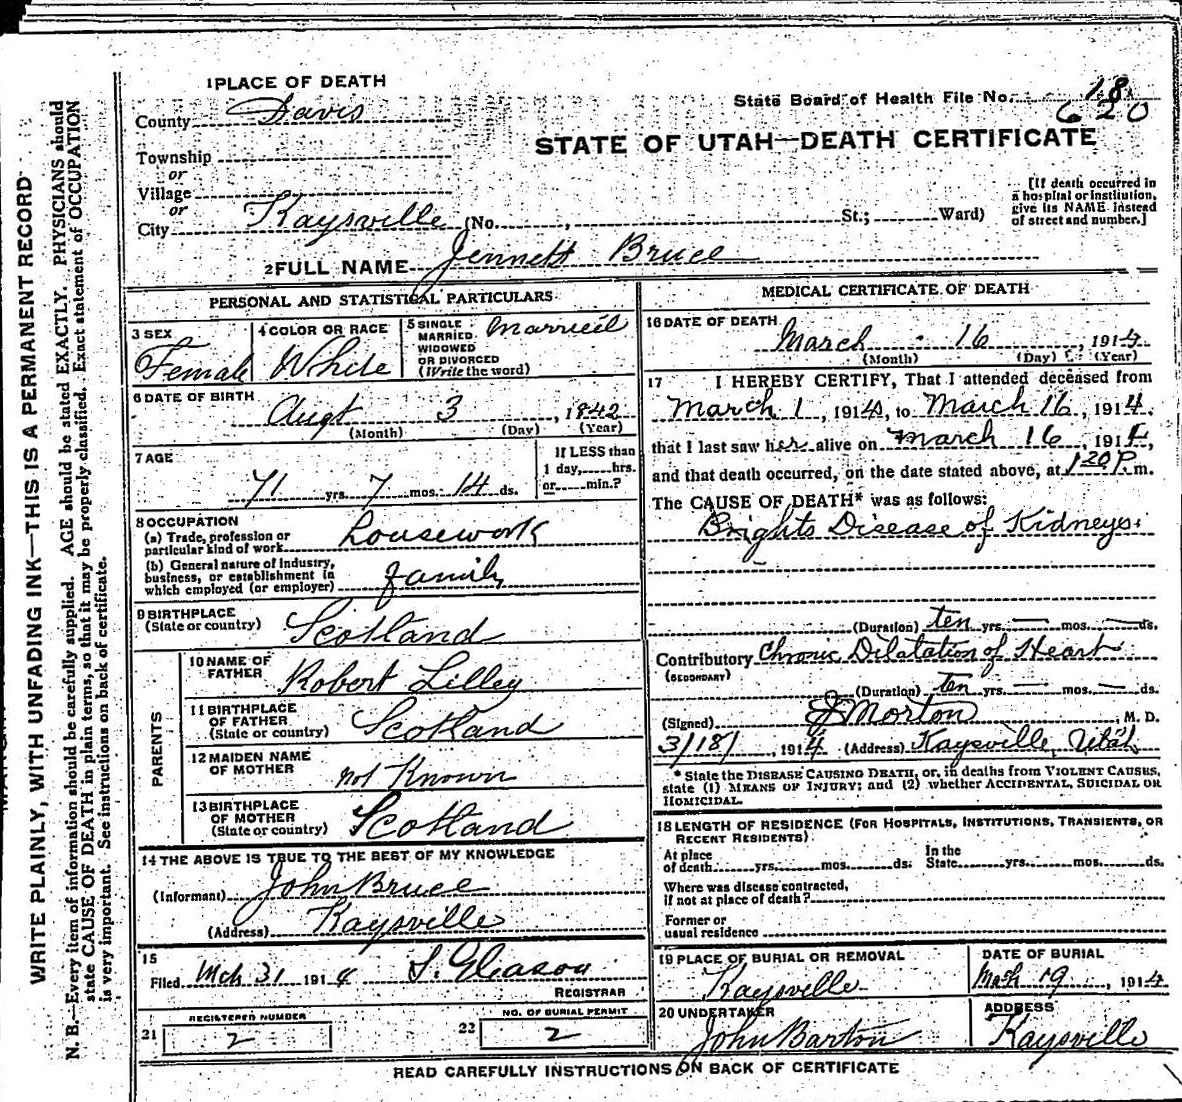 WRITE PLAINLY, WITH UNFADING INK—THIS IS A PERMANENT RECORD
N. B.—Every item of information should be carefully supplied. AGE should be stated EXACTLY. PHYSICIANS should
state CAUSE OF DEATH in plain terms, so that it may be properly classified. Exact statement of OCCUPATION
is very important. See instructions on back of certificate.
1 PLACE OF DEATH
County Davis
State Board of Health File No. 18
620
STATE OF UTAH—DEATH CERTIFICATE
Township
or
Village
or
City Kaysville (No. , St.; Ward)
[If death occurred in
a hospital or institution,
give its NAME instead
of street and number.]
2 FULL NAME Jennett Bruce
PERSONAL AND STATISTICAL PARTICULARS
3 SEX
Female
4 COLOR OR RACE
White
5 SINGLE
MARRIED
WIDOWED
OR DIVORCED
(Write the word)
Married
6 DATE OF BIRTH
Augt 3, 1842
(Month) (Day) (Year)
7 AGE
71 yrs. 7 mos. 14 ds.
If LESS than
1 day, hrs.
or min.?
8 OCCUPATION
(a) Trade, profession or
particular kind of work Housework
(b) General nature of industry,
business, or establishment in
which employed (or employer) family
9 BIRTHPLACE
(State or country) Scotland
PARENTS
10 NAME OF
FATHER Robert Lilley
11 BIRTHPLACE
OF FATHER
(State or country) Scotland
12 MAIDEN NAME
OF MOTHER not Known
13 BIRTHPLACE
OF MOTHER
(State or country) Scotland
14 THE ABOVE IS TRUE TO THE BEST OF MY KNOWLEDGE
(Informant) John Bruce
(Address) Kaysville
15
Filed Mch 31 1914 S. Gleason
REGISTRAR
21 REGISTERED NUMBER
2
22 NO. OF BURIAL PERMIT
2
MEDICAL CERTIFICATE OF DEATH
16 DATE OF DEATH
March 16, 1914
(Month) (Day) (Year)
17 I HEREBY CERTIFY, That I attended deceased from
March 1, 1914, to March 16, 1914.
that I last saw her alive on March 16, 1914,
and that death occurred, on the date stated above, at 1 20 P. m.
The CAUSE OF DEATH* was as follows:
Brights Disease of Kidneyes.
(Duration) ten yrs. — mos. — ds.
Contributory Chronic Dilatation of Heart
(SECONDARY)
(Duration) ten yrs. — mos. — ds.
(Signed) J Morton, M. D.
3/18/, 1914 (Address) Kaysville, Utah
* State the DISEASE CAUSING DEATH, or, in deaths from VIOLENT CAUSES,
state (1) MEANS OF INJURY; and (2) whether ACCIDENTAL, SUICIDAL OR
HOMICIDAL.
18 LENGTH OF RESIDENCE (FOR HOSPITALS, INSTITUTIONS, TRANSIENTS, OR
RECENT RESIDENTS)
At place
of death yrs. mos. ds.
In the
State yrs. mos. ds.
Where was disease contracted,
if not at place of death?
Former or
usual residence
19 PLACE OF BURIAL OR REMOVAL
Kaysville
DATE OF BURIAL
Mch 19, 1914
20 UNDERTAKER
John Barton
ADDRESS
Kaysville
READ CAREFULLY INSTRUCTIONS ON BACK OF CERTIFICATE